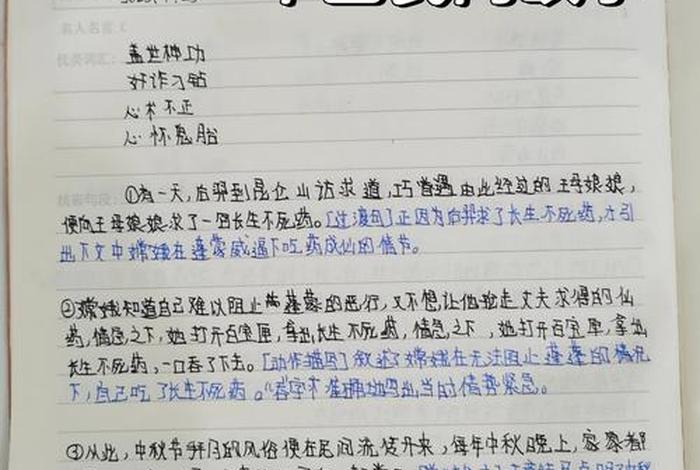 名人名言
优美词汇:
盖世神功
奸诈刁钻
心术不正
心怀鬼胎
①有一天,后羿到昆仑山访求道,巧遇由此经过的王母娘娘,
便向王母娘娘求了一包长生不死药。[过渡句]正因为后羿求了长生不死药,才引
出下文中嫦娥在蓬蒙威逼下吃药成仙的情节。
②嫦娥知道自己难以阻止蓬蒙的恶行,又不想让他抢走丈夫求得的仙
药,情急之下,她打开百宝匣,拿出长生不死药,情急之下,她打开百宝匣,拿出
长生不死药,一口吞了下去。[动作描写]叙述了嫦娥在无法阻止蓬蓬的情况
下,自己吃了长生不死药。"吞"字准确地写出当时情势紧急。
③从此,中秋节拜月的风俗便在民间流传开来,每年中秋晚上,家家都